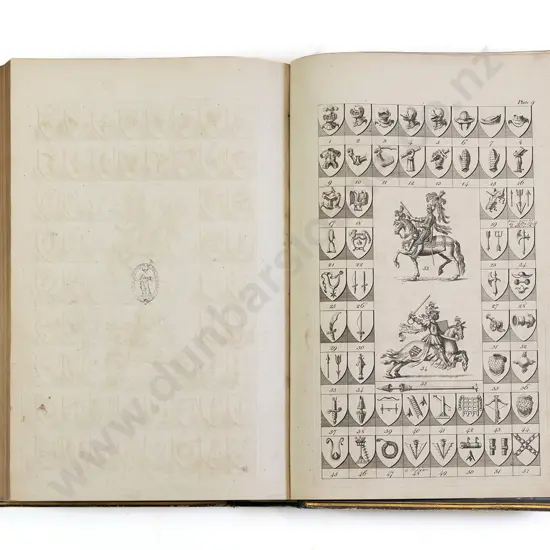 Plate 9
1 2 3 4 5 6 7 8
9 10 11 12 13 14 15 16
17 18 19
21 22 23 24
53
25 26 27 28
29 30 31 32
54
33 34 35 36
37 38 39 40 41 42 43 44
45 46 47 48 49 50 51 52
www.dunbarsloane.co.nz